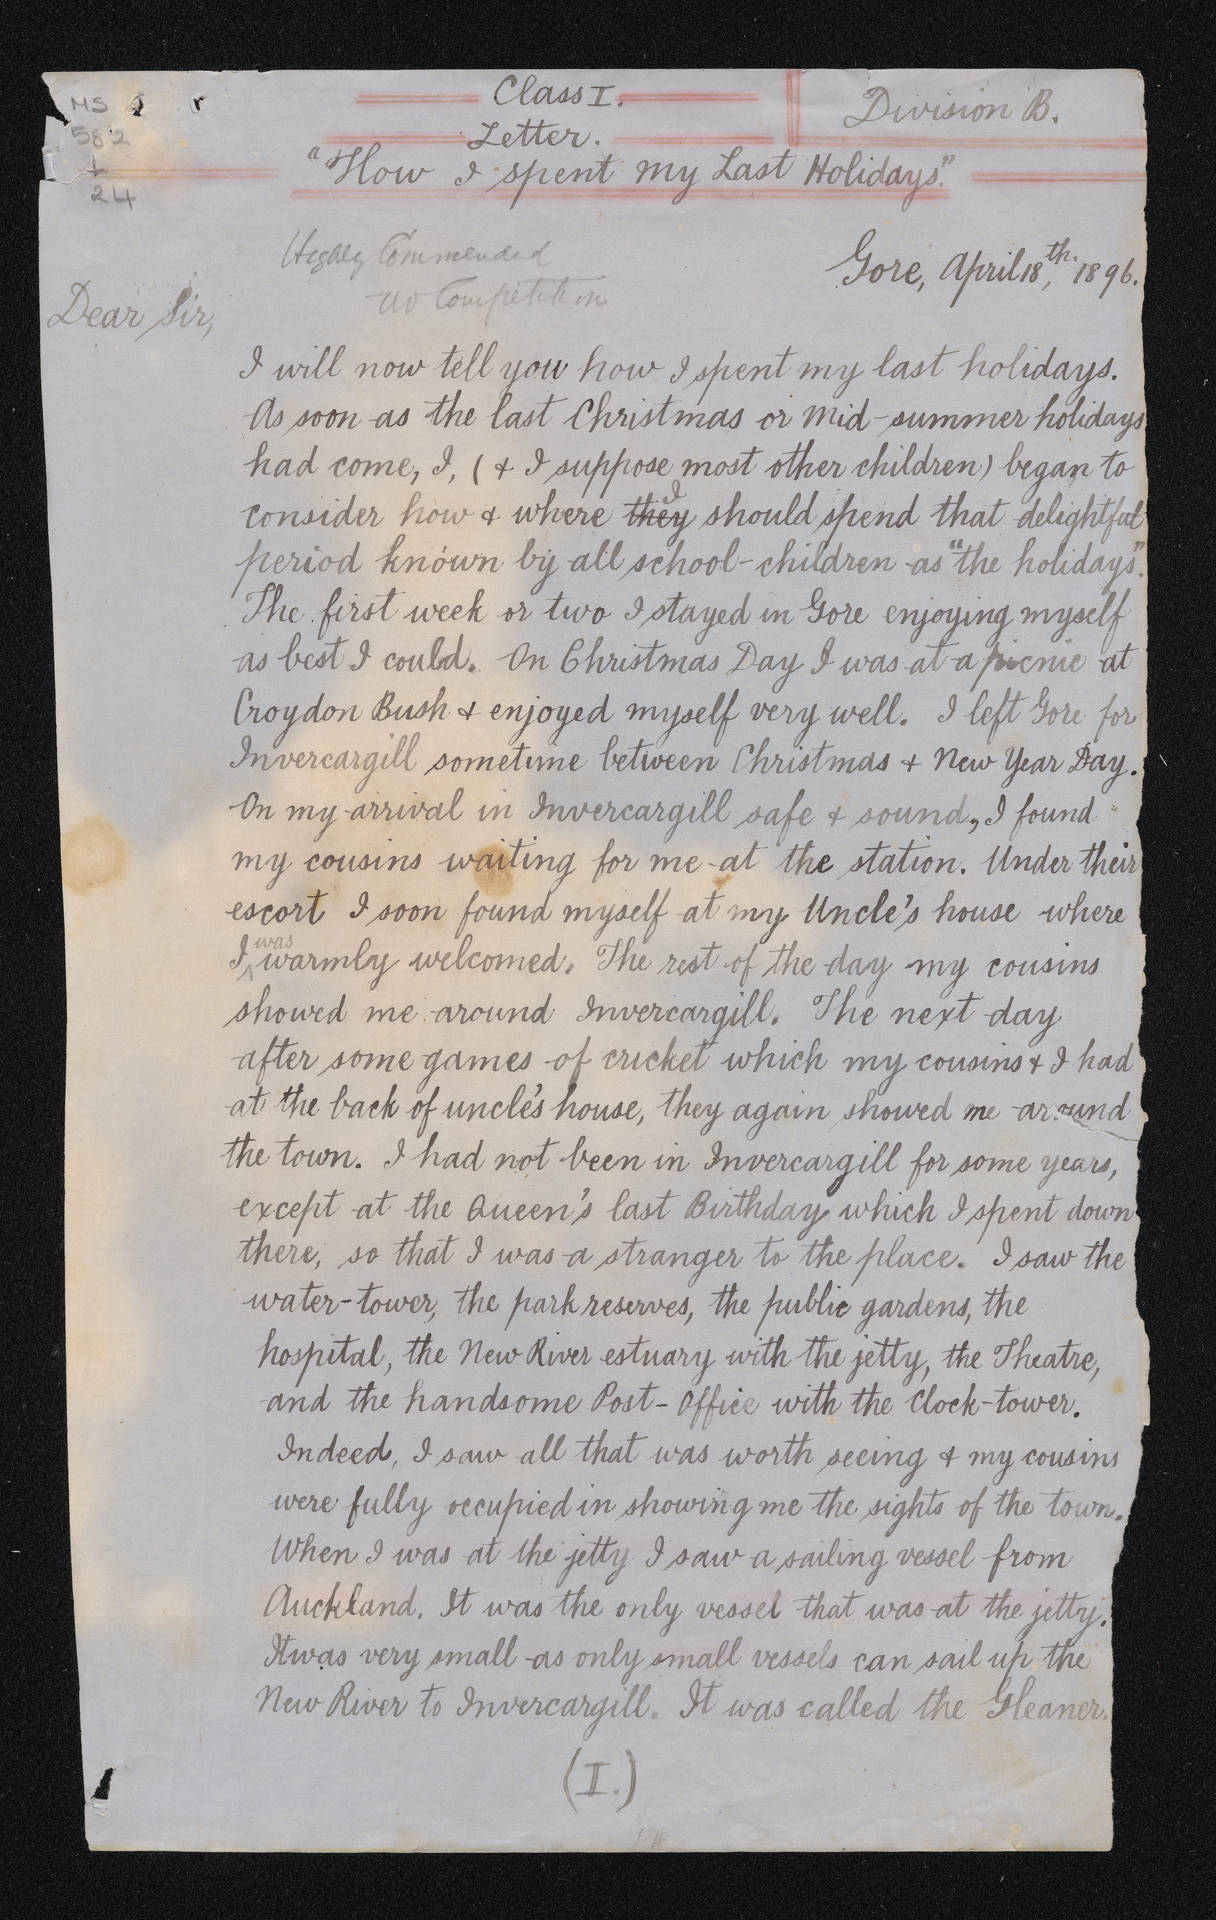 MS
582
+
24
Class I.
Division B.
Letter.
"How I spent my Last Holidays."
Highly Commended
no Competition
Gore, April 18th, 1896.
Dear Sir,
I will now tell you how I spent my last holidays.
As soon as the last Christmas or Mid-summer holidays
had come, I, (& I suppose most other children) began to
consider how & where they I should spend that delightful
period known by all school-children as "the holidays".
The first week or two I stayed in Gore enjoying myself
as best I could. On Christmas Day I was at a picnic at
Croydon Bush & enjoyed myself very well. I left Gore for
Invercargill sometime between Christmas & New Year Day.
On my arrival in Invercargill safe & sound, I found
my cousins waiting for me at the station. Under their
escort I soon found myself at my Uncle's house where
I was warmly welcomed. The rest of the day my cousins
showed me around Invercargill. The next day
after some games of cricket which my cousins & I had
at the back of uncle's house, they again showed me around
the town. I had not been in Invercargill for some years,
except at the Queen's last Birthday which I spent down
there, so that I was a stranger to the place. I saw the
water-tower, the park reserves, the public gardens, the
hospital, the New River estuary with the jetty, the Theatre,
and the handsome Post-Office with the Clock-tower.
Indeed, I saw all that was worth seeing & my cousins
were fully occupied in showing me the sights of the town.
When I was at the jetty I saw a sailing vessel from
Auckland. It was the only vessel that was at the jetty.
It was very small as only small vessels can sail up the
New River to Invercargill. It was called the Gleaner.
(I.)